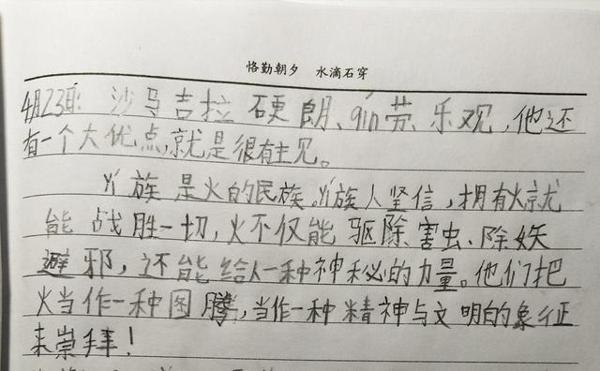 恪勤朝夕 水滴石穿
4月23日: 沙马吉拉硬朗、qín劳、乐观,他还
有一个大优点,就是很有主见。
yí族是火的民族。yí族人坚信,拥有火就
能战胜一切,火不仅能驱除害虫、除妖
避邪,还能给人一种神秘的力量。他们把
火当作一种图腾,当作一种精神与文明的象征
来崇拜!